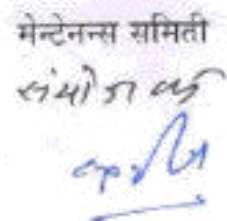 मेन्टेनन्स समिती
संयोजक